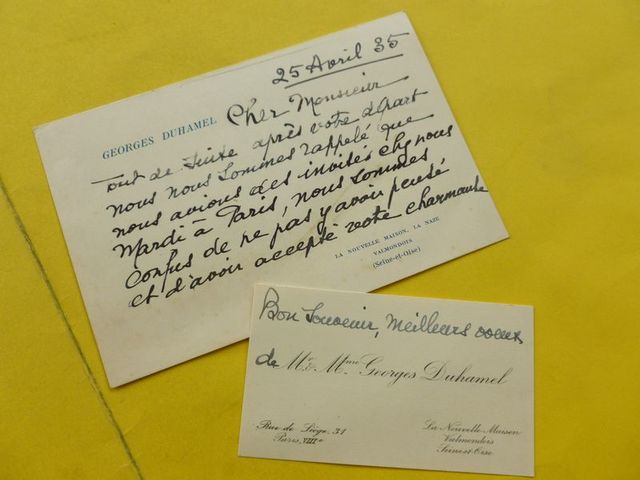 25 Avril 35
GEORGES DUHAMEL
Cher Monsieur
tout de suite après votre départ
nous nous sommes rappelé que
nous avions des invités chez nous
Mardi à Paris, nous sommes
confus de ne pas y avoir pensé
et d'avoir accepté votre charmante
LA NOUVELLE MAISON, LA NAZE
VALMONDOIS
(Seine-et-Oise)
Bon Souvenir, meilleurs voeux
de Mr & Mme Georges Duhamel
Rue de Liège, 31
Paris, VIIIe
La Nouvelle Maison
Valmondois
Seine et Oise